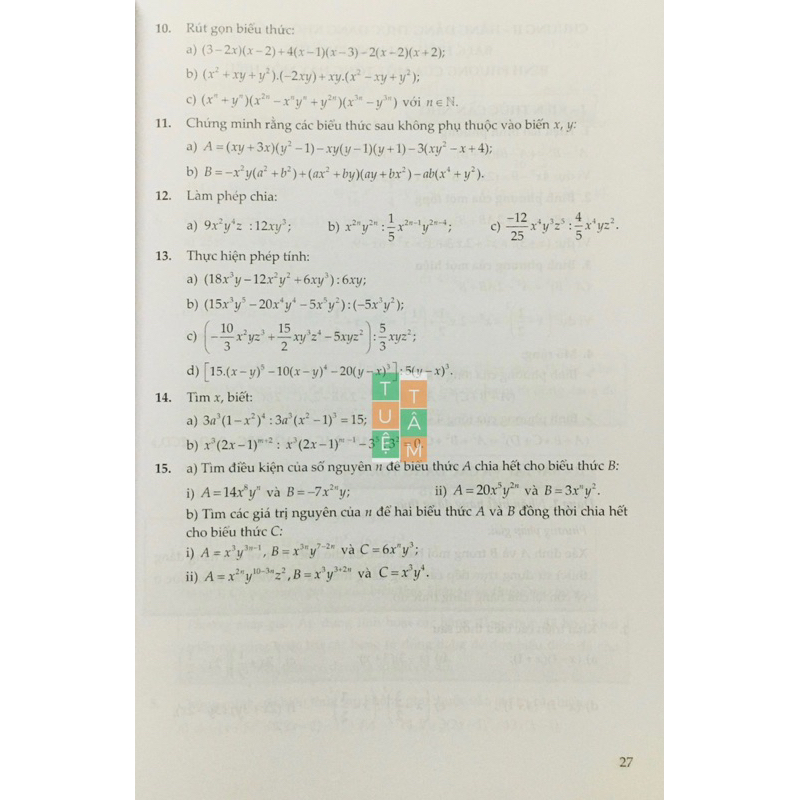 10. Rút gọn biểu thức:
a) (3−2x)(x−2)+4(x−1)(x−3)−2(x−2)(x+2);
b) (x²+xy+y²).(−2xy)+xy.(x²−xy+y²);
c) (xⁿ+yⁿ)(x²ⁿ−xⁿyⁿ+y²ⁿ)(x³ⁿ−y³ⁿ) với n∈ℕ.
11. Chứng minh rằng các biểu thức sau không phụ thuộc vào biến x, y:
a) A=(xy+3x)(y²−1)−xy(y−1)(y+1)−3(xy²−x+4);
b) B=−x²y(a²+b²)+(ax²+by)(ay+bx²)−ab(x⁴+y²).
12. Làm phép chia:
a) 9x²y⁴z :12xy³; b) x²ⁿy²ⁿ : 1/5 x²ⁿ⁻¹y²ⁿ⁻⁴; c) −12/25 x⁴y³z⁵ : 4/5 x⁴yz².
13. Thực hiện phép tính:
a) (18x³y−12x²y²+6xy³):6xy;
b) (15x³y⁵−20x⁴y⁴−5x⁵y²):(−5x³y²);
c) (−10/3 x²yz³+15/2 xy³z⁴−5xyz²): 5/3 xyz²;
d) [15.(x−y)⁵−10(x−y)⁴−20(y−x)³]:5(y−x)³.
14. Tìm x, biết:
a) 3a³(1−x²)⁴:3a³(x²−1)³=15;
b) x³(2x−1)ᵐ⁺² : x³(2x−1)ᵐ⁻¹−3⁵:3²=0.
15. a) Tìm điều kiện của số nguyên n để biểu thức A chia hết cho biểu thức B:
i) A=14x⁸yⁿ và B=−7x²ⁿy; ii) A=20x⁵y²ⁿ và B=3xⁿy².
b) Tìm các giá trị nguyên của n để hai biểu thức A và B đồng thời chia hết
cho biểu thức C:
i) A=x³y³ⁿ⁻¹, B=x³ⁿy⁷⁻²ⁿ và C=6xⁿy³;
ii) A=x²ⁿy¹⁰⁻³ⁿz²,B=x³y³⁺²ⁿ và C=x³y⁴.
TUỆ TÂM
27